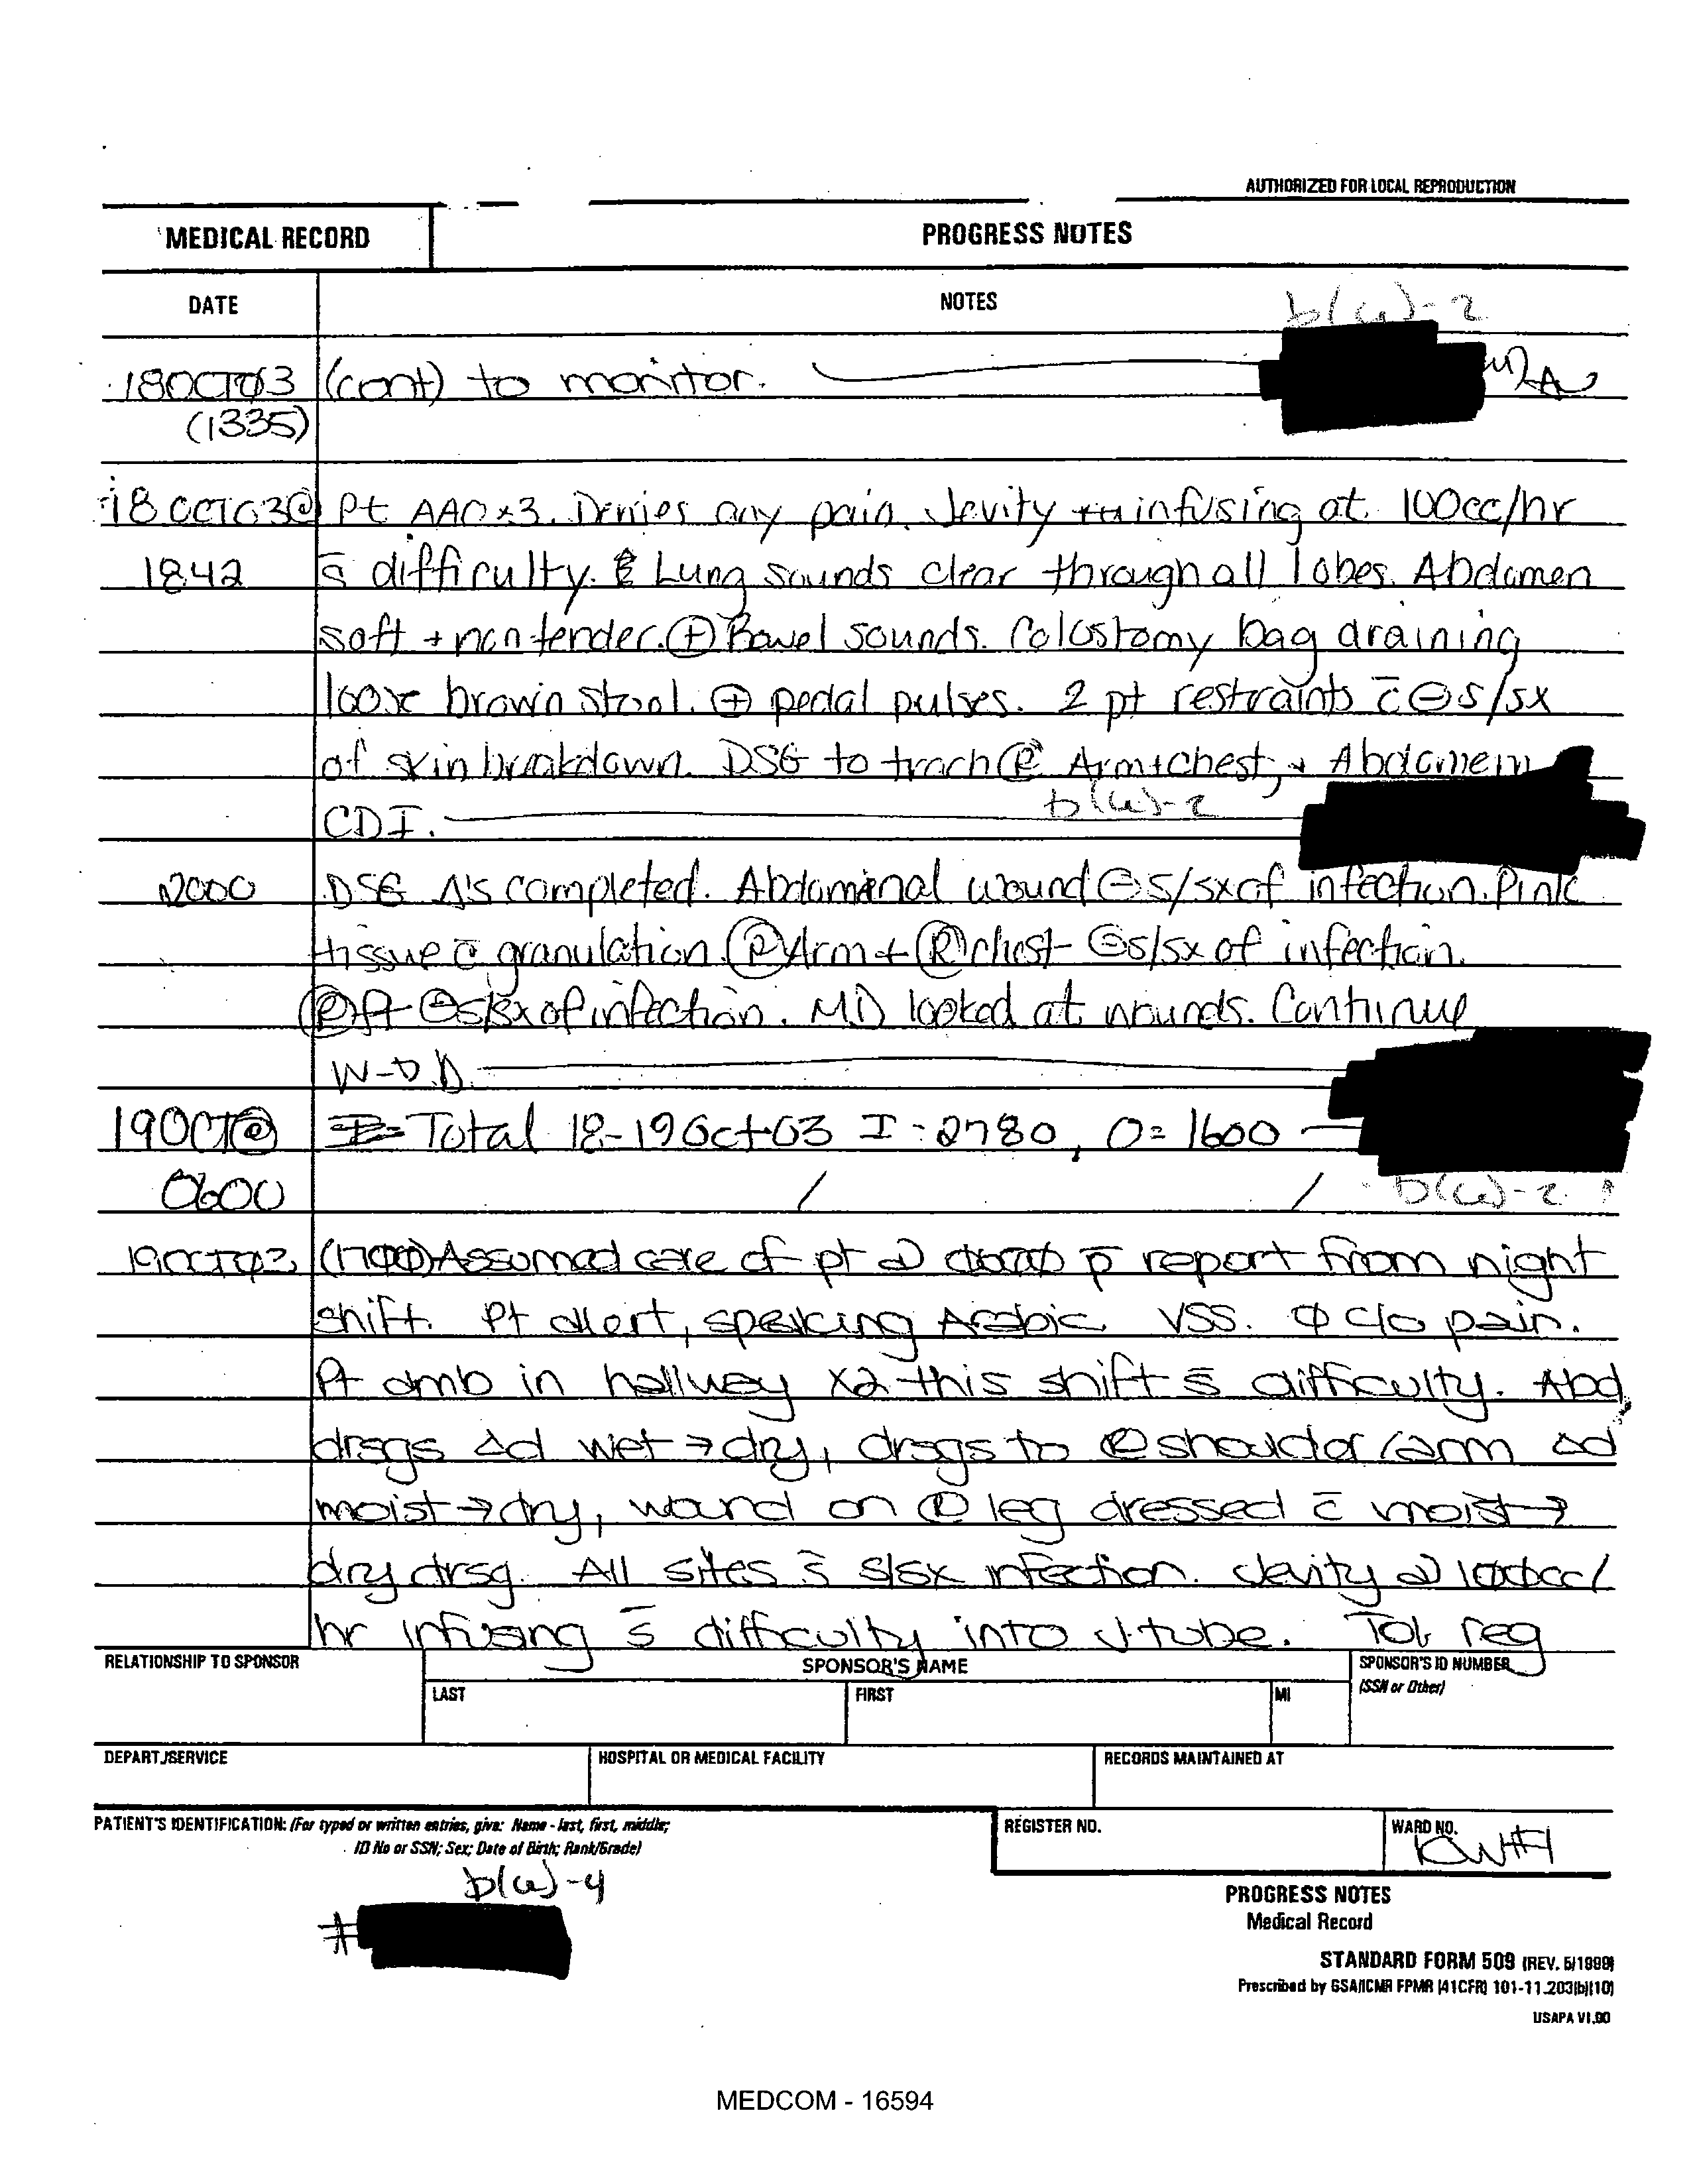 AUTHORIZED FOR LOCAL REPRODUCTION
MEDICAL RECORD
PROGRESS NOTES
DATE
NOTES
b(6)-2
18OCTØ3 (cont) to monitor.
(1335)
18 OCT03@ Pt AAOx3. Denies any pain. Jevity infusing at 100cc/hr
1842 s̄ difficulty. Lung sounds clear through all lobes. Abdomen
soft + non tender. ⊕ Bowel sounds. Colostomy bag draining
loose brown stool. ⊕ pedal pulses. 2 pt restraints c̄ ⊖ s/sx
of skin breakdown. DSG to trach Ⓡ Arm + chest, + Abdomen
CDI. b(6)-2
2000 DSG Δ's completed. Abdominal wound ⊖ s/sx of infection. Pink
tissue c̄ granulation. Ⓡ Arm + Ⓡ chest ⊖ s/sx of infection.
Ⓡ ft ⊖ s/sx of infection. MD looked at wounds. Continue
W-D.D.
19OCT@ Total 18-19 Oct 03 I = 2780, O = 1600
0600 / / b(6)-2
19OCTØ3 (1700) Assumed care of pt @ p̄ report from night
shift. Pt alert, speaking Arabic. VSS. Φ c/o pain.
Pt amb in hallway x2 this shift s̄ difficulty. Abd
drsgs Δd wet → dry, drsgs to Ⓡ shoulder/arm Δd
moist → dry, wound on Ⓡ leg dressed c̄ moist →
dry drsg. All sites s̄ s/sx infection. Jevity @ 100cc/
hr infusing s̄ difficulty into J-tube. Tol reg
RELATIONSHIP TO SPONSOR
SPONSOR'S NAME
SPONSOR'S ID NUMBER
(SSN or Other)
LAST
FIRST
MI
DEPART./SERVICE
HOSPITAL OR MEDICAL FACILITY
RECORDS MAINTAINED AT
PATIENT'S IDENTIFICATION: (For typed or written entries, give: Name - last, first, middle;
ID No or SSN; Sex; Date of Birth; Rank/Grade)
REGISTER NO.
WARD NO.
ICW#1
b(6)-4
#
PROGRESS NOTES
Medical Record
STANDARD FORM 509 (REV. 5/1999)
Prescribed by GSA/ICMR FPMR (41CFR) 101-11.203(b)(10)
USAPA V1.00
MEDCOM - 16594